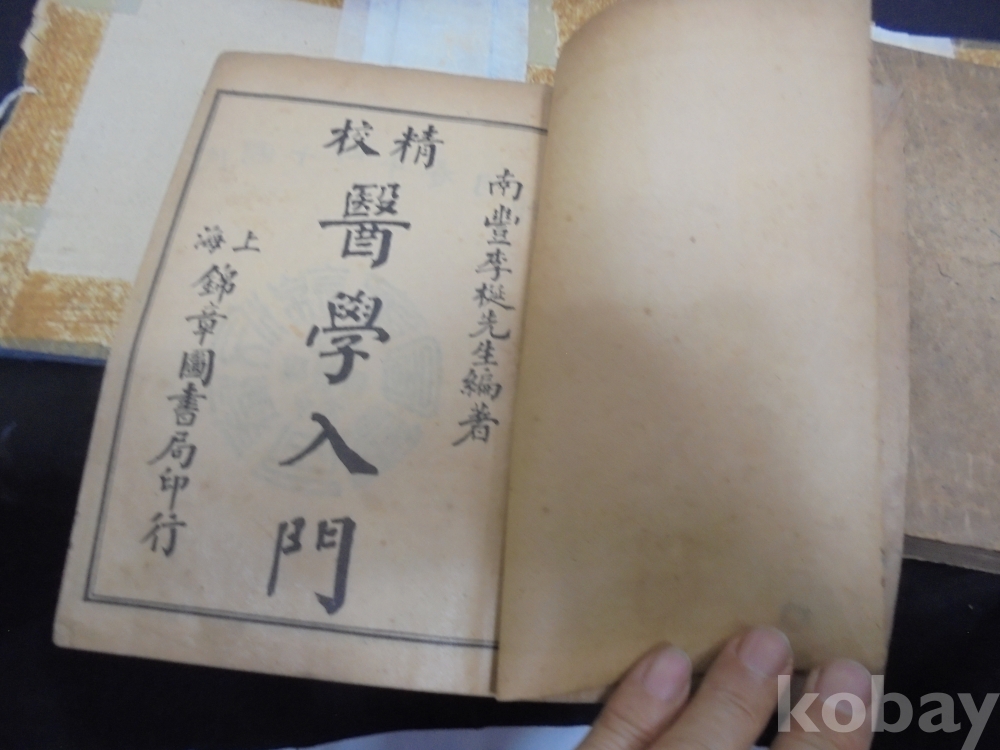 南豐李梴先生編著
精校
醫學入門
上海
錦章圖書局印行
kobay